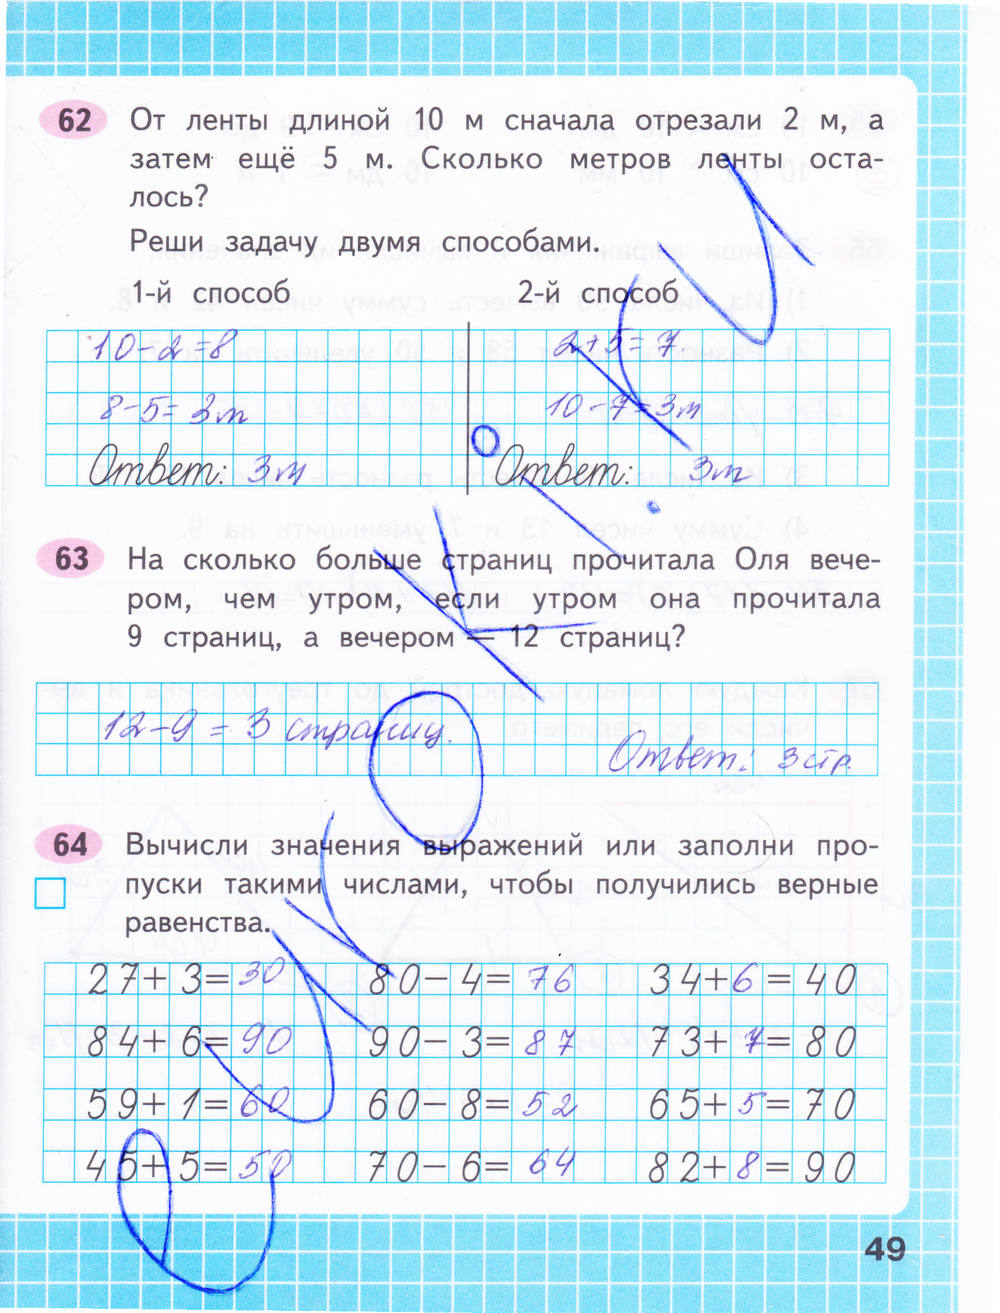 62 От ленты длиной 10 м сначала отрезали 2 м, а
затем ещё 5 м. Сколько метров ленты оста-
лось?
Реши задачу двумя способами.
1-й способ 2-й способ
10-2=8 2+5=7
8-5=3м 10-7=3м
Ответ: 3м Ответ: 3м
63 На сколько больше страниц прочитала Оля вече-
ром, чем утром, если утром она прочитала
9 страниц, а вечером — 12 страниц?
12-9=3 страниц.
Ответ: 3 стр.
64 Вычисли значения выражений или заполни про-
пуски такими числами, чтобы получились верные
равенства.
27+3=30 80-4=76 34+6=40
84+6=90 90-3=87 73+7=80
59+1=60 60-8=52 65+5=70
45+5=50 70-6=64 82+8=90
49